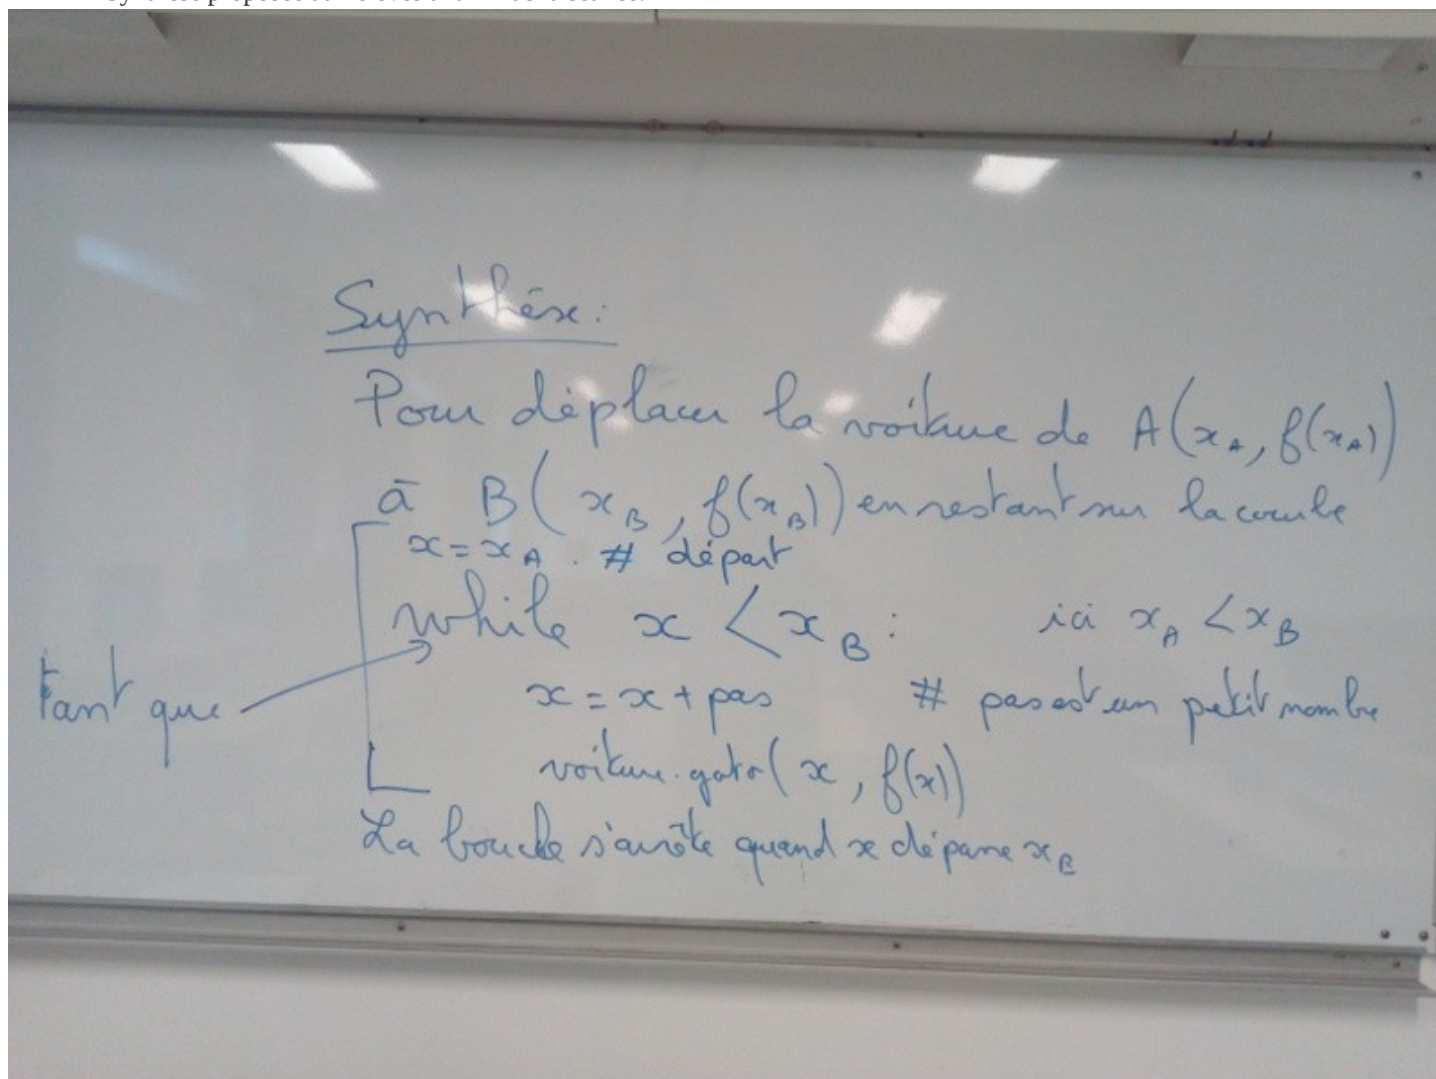 Synthèse:
Pour déplacer la voiture de A(x_A, f(x_A))
à B(x_B, f(x_B)) en restant sur la courbe
x = x_A . # départ
while x < x_B : ici x_A < x_B
tant que
x = x + pas # pas est un petit nombre
voiture.goto(x, f(x))
La boucle s'arrête quand x dépasse x_B